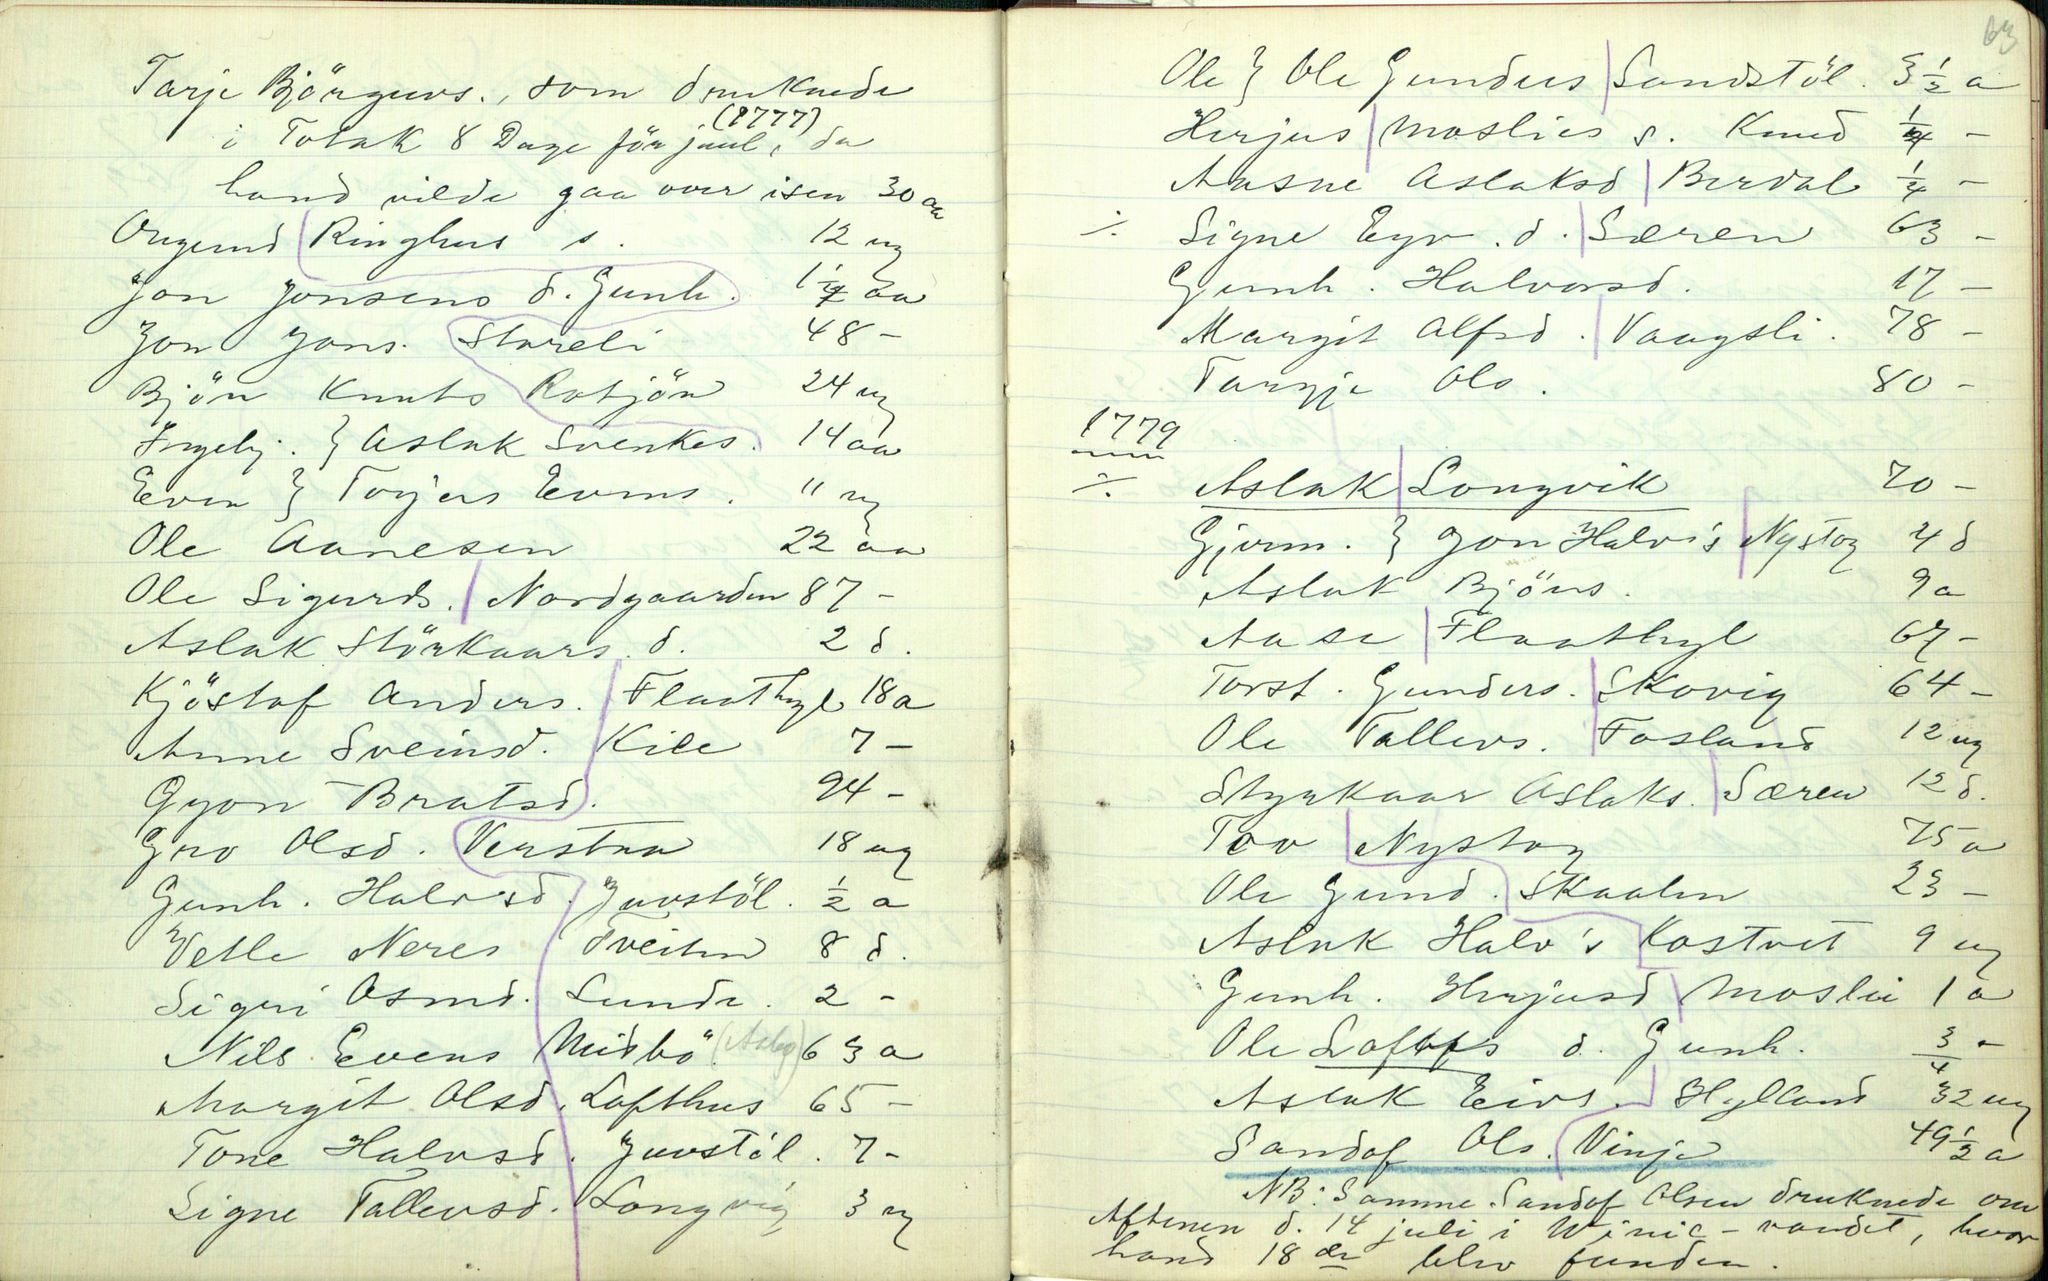 Tarje Björguvs., som druknede
(1777)
i Totak 8 Dage för juul, da
hand vilde gaa over isen 30 aa
Ougund Ringhus s. 12 ug
Jon Jonsens d. Gunh. 1 1/4 aa
Jon Jons. Storeli 48 -
Björn Knuts Rotjön 24 ug
Ingebj. } Aslak Svenkes. 14 aa
Even } Torjers Evens. " ug
Ole Aanesen 22 aa
Ole Sigurds. Nordgaarden 87 -
Aslak Störkaars. d. 2 d.
Kjöstof Anders. Flaathyl 18 a
Anne Sveinsd. Kile 7 -
Gyon Bratsd. 94 -
Gro Olsd. Verstra 18 ug
Gunh. Halvsd. Juvstöl. 1/2 a
Vetle Neres Tveiten 8 d.
Sigri Asmd. Lunde. 2 -
Nils Evens Midbö (Asbg) 63 a
Margit Olsd. Lofthus 65 -
Tone Halvsd. Juvstöl. 7 -
Signe Tallevsd. Longvig 3 ug
63
Ole } Ole Gunders Sandstöl. 3 1/2 a
Herjus Moslies s. Knud 1/4 -
Aasne Aslaksd Berdal 1/4 -
⁒ Signe Eyv. d. Særen 63 -
Gunh. Halvorsd. 17 -
Margit Alfsd. Vaagsli. 78 -
Targje Ols. 80 -
1779
⁒ Aslak Longvik 70 -
Gjerm. } Jon Halv's Nystog 4 d
Aslak Björns. 9 a
Aase Flaathyl 67 -
Torst. Gunders. Skovig 64 -
Ole Tallevs. Fosland 12 ug
Styrkaar Aslaks. Særen 12 d.
Tov Nystog 75 a
Ole Gund. Skaalen 23 -
Aslak Halv's Kostvet 9 ug
Gunh. Herjusd Moslie 1 a
Ole Lofts d. Gunh. 3/4 -
Aslak Eivs. Hylland 32 ug
Sandof Ols. Vinje 49 1/2 a
NB: Samme Sandof Olsen druknede om
Aftenen d. 14 juli i Winie-vandet, hvor
hand 18 de blev funden.